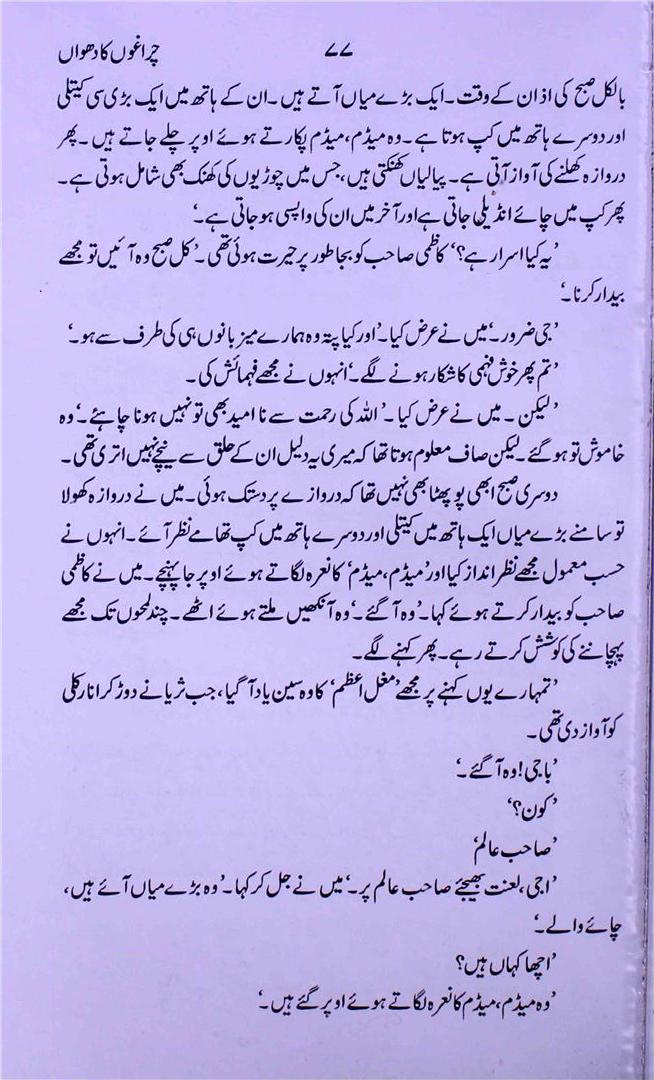 چراغوں کا دھواں
۷۷
بالکل صبح کی اذان کے وقت۔ ایک بڑے میاں آتے ہیں۔ ان کے ہاتھ میں ایک بڑی سی کیتلی
اور دوسرے ہاتھ میں کپ ہوتا ہے۔ وہ میڈم، میڈم پکارتے ہوئے اوپر چلے جاتے ہیں۔ پھر
دروازہ کھلنے کی آواز آتی ہے۔ پیالیاں کھنکتی ہیں، جس میں چوڑیوں کی کھنک بھی شامل ہوتی ہے۔
پھر کپ میں چائے انڈیلی جاتی ہے اور آخر میں ان کی واپسی ہو جاتی ہے۔‘
’یہ کیا اسرار ہے؟‘ کاظمی صاحب کو بجا طور پر حیرت ہوئی تھی۔ ’کل صبح وہ آئیں تو مجھے
بیدار کرنا۔‘
’جی ضرور۔‘ میں نے عرض کیا۔ ’اور کیا پتہ وہ ہمارے میزبانوں ہی کی طرف سے ہو۔‘
’تم پھر خوش فہمی کا شکار ہونے لگے۔‘ انہوں نے مجھے فہمائش کی۔
’لیکن۔ میں نے عرض کیا۔ ’اللہ کی رحمت سے نا امید بھی تو نہیں ہونا چاہئے۔‘ وہ
خاموش تو ہو گئے۔ لیکن صاف معلوم ہوتا تھا کہ میری یہ دلیل ان کے حلق سے نیچے نہیں اتری تھی۔
دوسری صبح ابھی پو پھٹا بھی نہیں تھا کہ دروازے پر دستک ہوئی۔ میں نے دروازہ کھولا
تو سامنے بڑے میاں ایک ہاتھ میں کیتلی اور دوسرے ہاتھ میں کپ تھامے نظر آئے۔ انہوں نے
حسب معمول مجھے نظر انداز کیا اور ’میڈم، میڈم‘ کا نعرہ لگاتے ہوئے اوپر جا پہنچے۔ میں نے کاظمی
صاحب کو بیدار کرتے ہوئے کہا۔ ’وہ آ گئے۔‘ وہ آنکھیں ملتے ہوئے اٹھے۔ چند لمحوں تک مجھے
پہچاننے کی کوشش کرتے رہے۔ پھر کہنے لگے۔
’تمہارے یوں کہنے پر مجھے ’مغل اعظم‘ کا وہ سین یاد آ گیا، جب ثریا نے دوڑ کر انارکلی
کو آواز دی تھی۔
’باجی! وہ آ گئے۔‘
’کون؟‘
’صاحب عالم‘
’اجی، لعنت بھیجئے صاحب عالم پر۔‘ میں نے جل کر کہا۔ ’وہ بڑے میاں آئے ہیں،
چائے والے۔‘
’اچھا کہاں ہیں؟
’وہ میڈم، میڈم کا نعرہ لگاتے ہوئے اوپر گئے ہیں۔‘